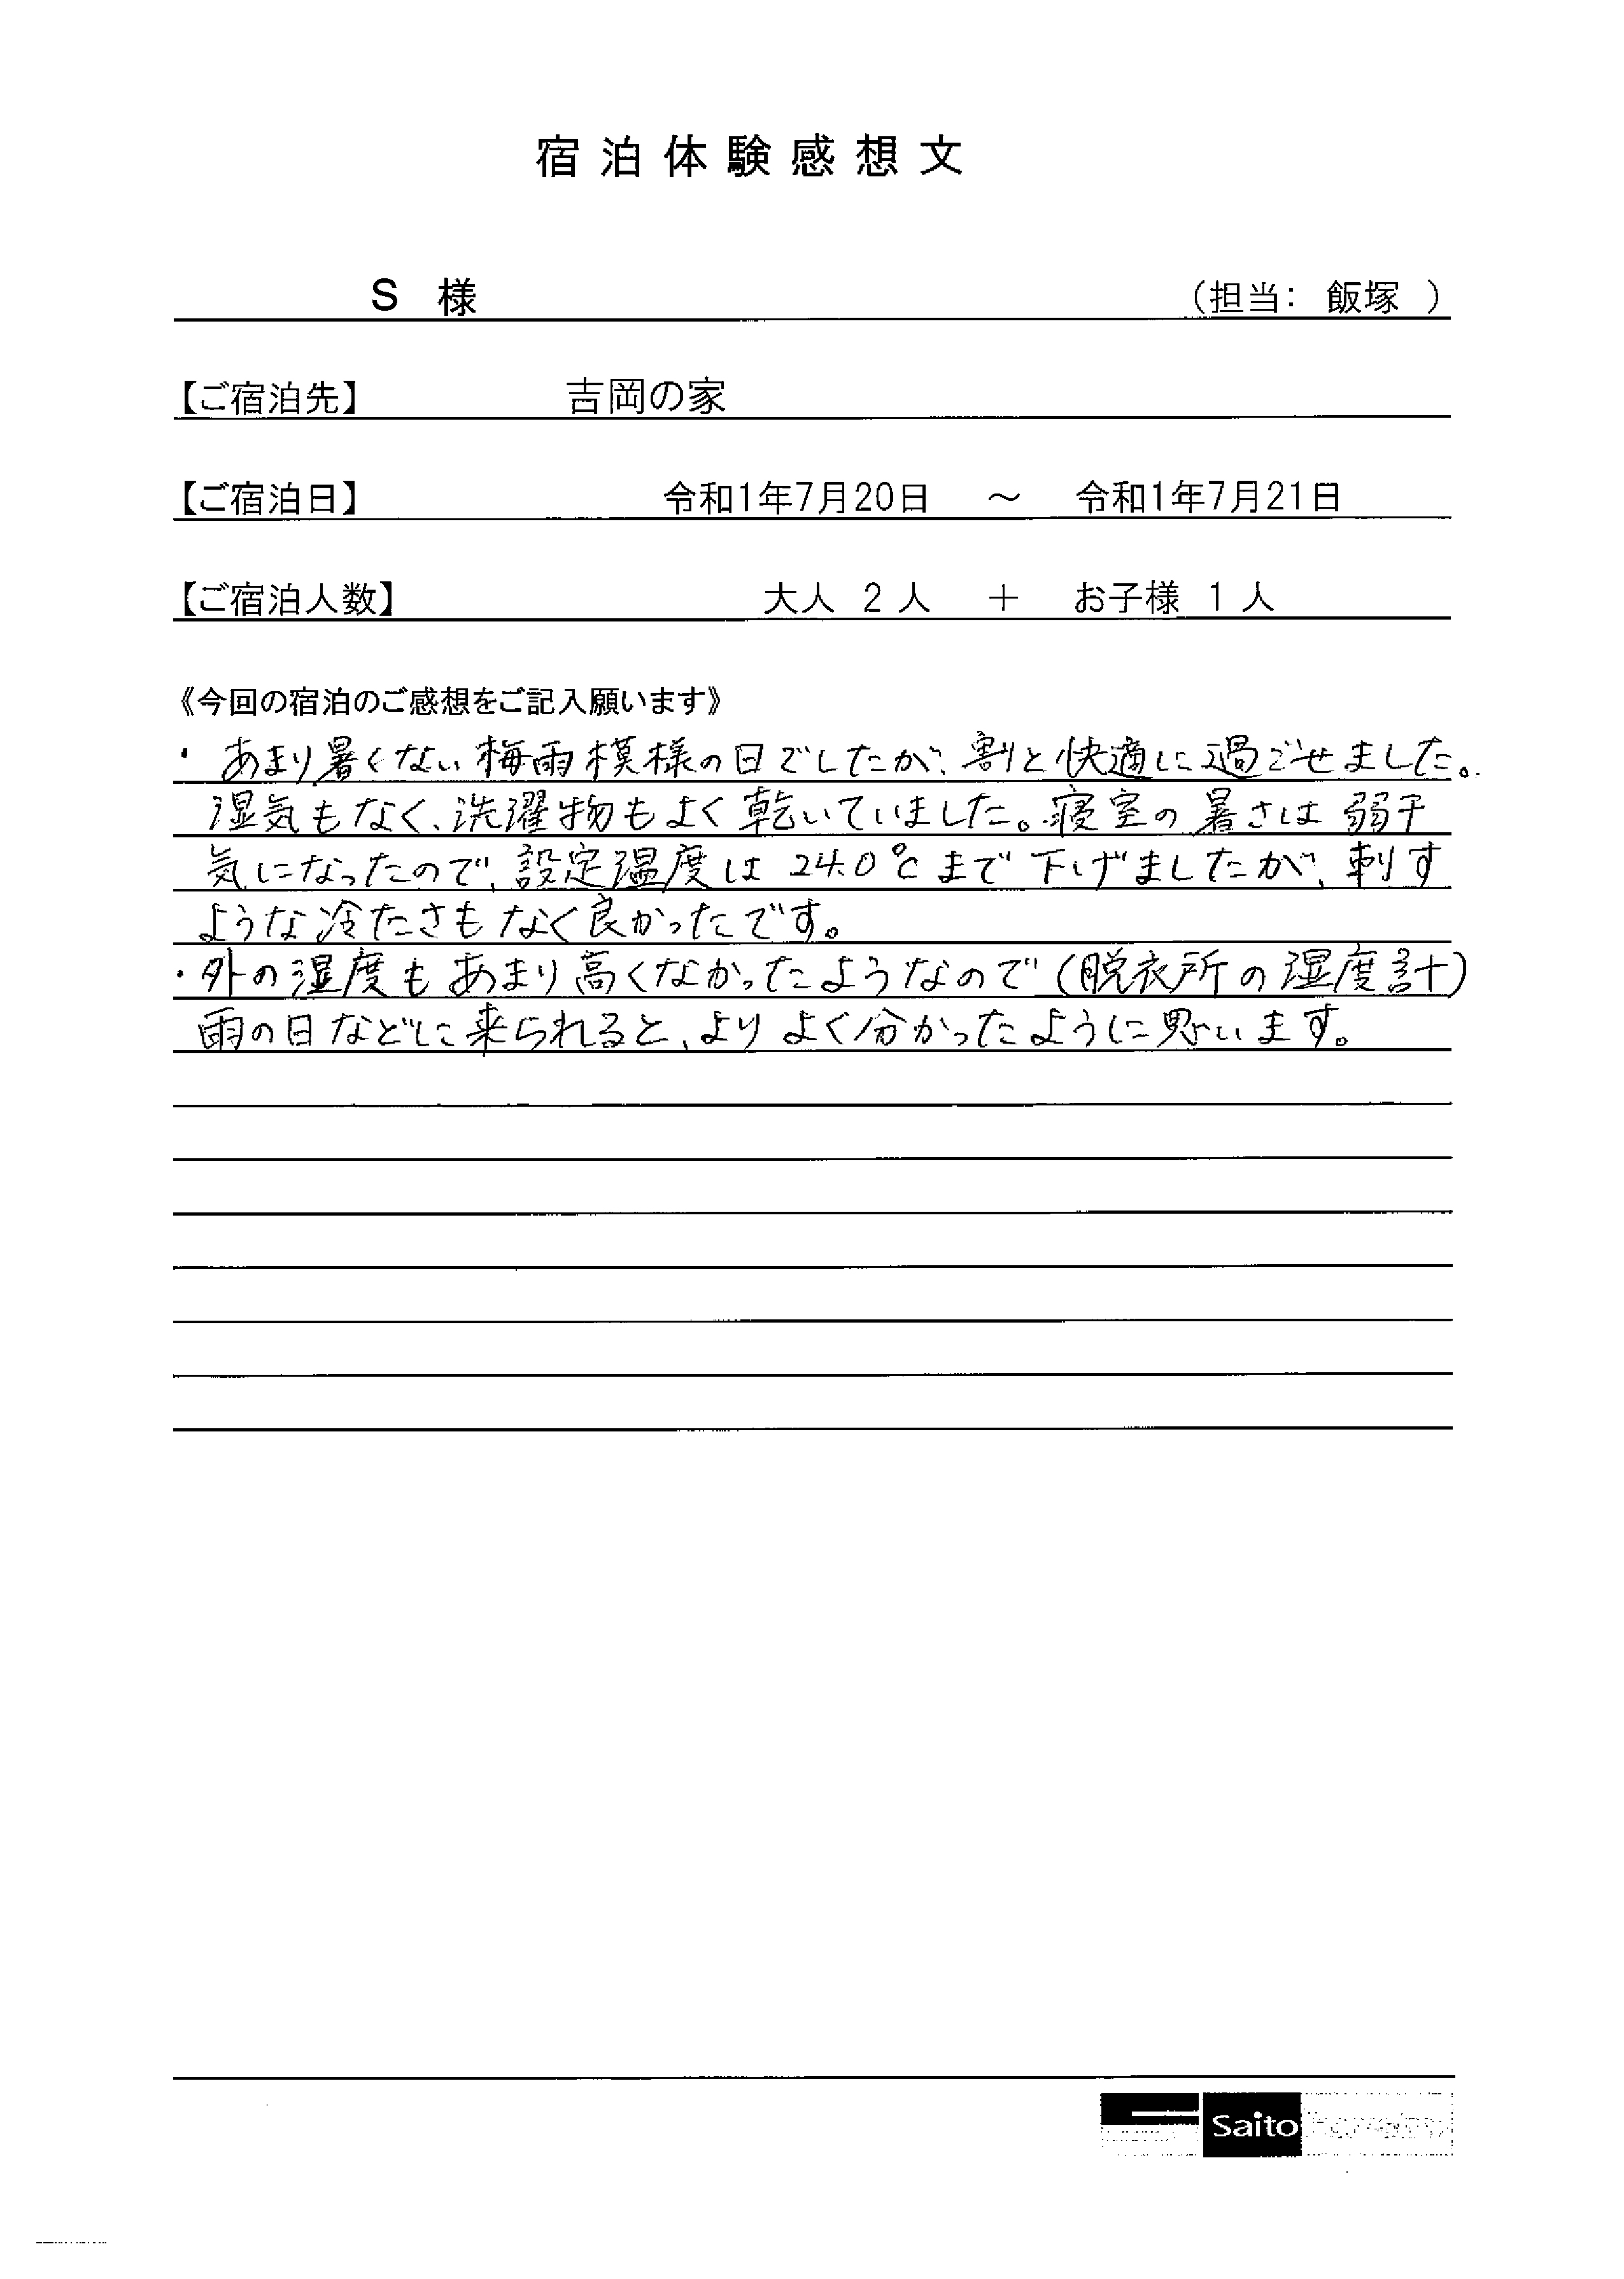 宿泊体験感想文
S 様 (担当: 飯塚 )
【ご宿泊先】 吉岡の家
【ご宿泊日】 令和1年7月20日 ～ 令和1年7月21日
【ご宿泊人数】 大人 2 人 ＋ お子様 1 人
《今回の宿泊のご感想をご記入願います》
・あまり暑くない梅雨模様の日でしたが、割と快適に過ごせました。
湿気もなく、洗濯物もよく乾いていました。寝室の暑さは弱干
気になったので、設定温度は24.0℃まで下げましたが、刺す
ような冷たさもなく良かったです。
・外の湿度もあまり高くなかったようなので(脱衣所の湿度計)
雨の日などに来られると、よりよく分かったように思います。
Saito